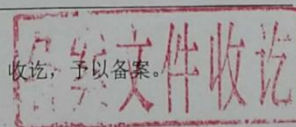 收讫，予以备案。
备案文件收讫